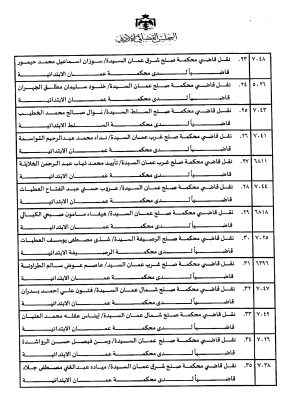 المجلس القضائي الأردني
٧٠٤٨ ٢٣. نقل قاضي محكمة صلح شرق عمان السيدة/ سوزان اسماعيل محمد حيمور
قاضياً لدى محكمة عمان الابتدائية
٥٠٢٦ ٢٤. نقل قاضي محكمة صلح عمان السيدة/ خلود سليمان مطلق الجبران
قاضياً لدى محكمة عمان الابتدائية
٧٠٤٣ ٢٥. نقل قاضي محكمة صلح السلط السيدة/ نوال صالح محمد الخطيب
قاضياً لدى محكمة السلط الابتدائية
٧٠٤١ ٢٦. نقل قاضي محكمة صلح غرب عمان السيدة/ نداء محمد عبدالرحيم القواسمة
قاضياً لدى محكمة عمان الابتدائية
٦٨١١ ٢٧. نقل قاضي محكمة صلح غرب عمان السيدة/ تأييد محمد ذياب عبد الرحمن الخلايلة
قاضياً لدى محكمة عمان الابتدائية
٧٠٤٤ ٢٨. نقل قاضي محكمة صلح عمان السيدة/ عروب حسني عبد الفتاح العطيات
قاضياً لدى محكمة عمان الابتدائية
٦٨١٨ ٢٩. نقل قاضي محكمة صلح عمان السيدة/ هيفاء مأمون صبحي الكيالي
قاضياً لدى محكمة عمان الابتدائية
٧٠٢٥ ٣٠. نقل قاضي محكمة صلح الرصيفة السيدة/ شذى مصطفى يوسف العطيات
قاضياً لدى محكمة الرصيفة الابتدائية
٦٣٩٦ ٣١. نقل قاضي محكمة صلح غرب عمان السيد/ عاصم عوض سالم الطراونة
قاضياً لدى محكمة عمان الابتدائية
٧٠٤٧ ٣٢. نقل قاضي محكمة صلح شمال عمان السيدة/ فنون علي احمد بدران
قاضياً لدى محكمة عمان الابتدائية
٧٠٤٩ ٣٣. نقل قاضي محكمة صلح شمال عمان السيدة/ إيناس عقله محمد العليان
قاضياً لدى محكمة عمان الابتدائية
٧٠٢٦ ٣٤. نقل قاضي محكمة صلح عمان السيدة/ وسن فيصل حسن الرواشدة
قاضياً لدى محكمة عمان الابتدائية
٧٠٣٨ ٣٥. نقل قاضي محكمة صلح شرق عمان السيدة/ مياده عبدالغني مصطفى جلاد
قاضياً لدى محكمة عمان الابتدائية